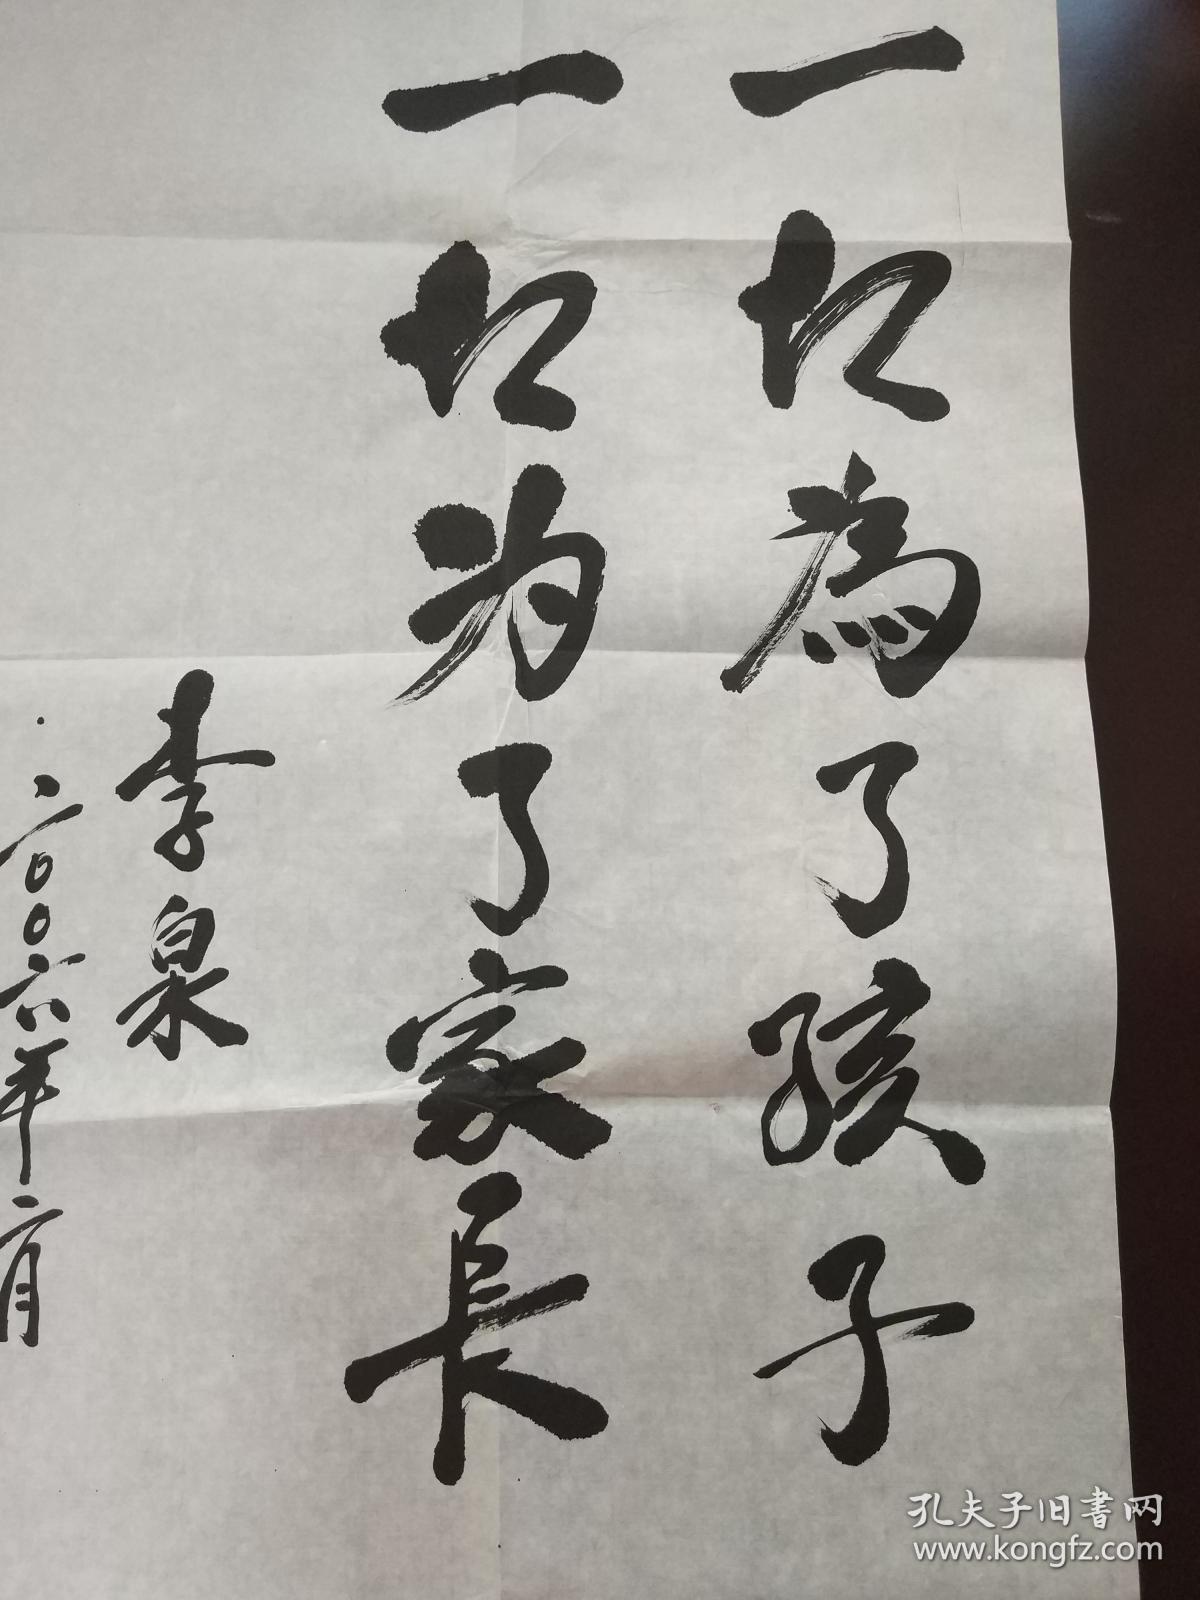 一切為了孩子
一切为了家長
李泉
二〇〇六年二月
孔夫子旧書网
www.kongfz.com